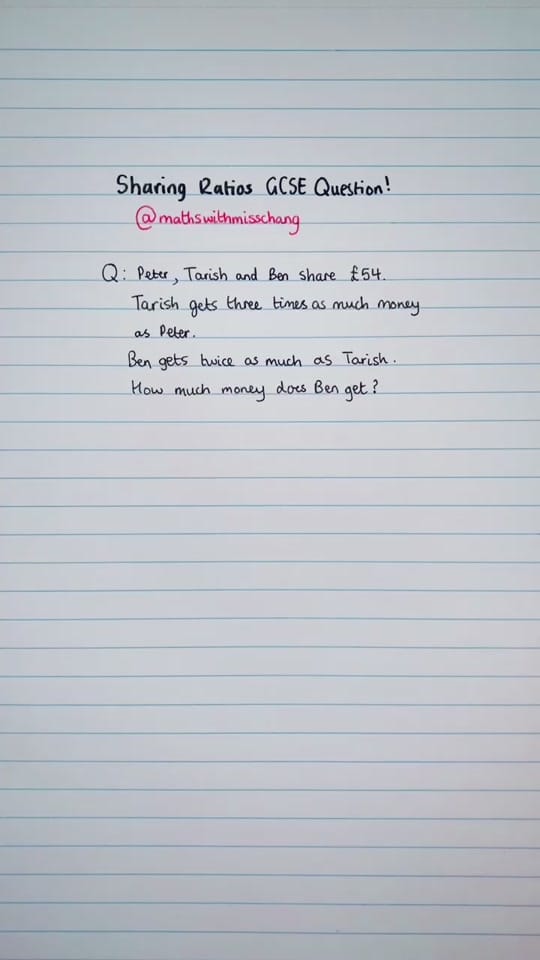 Sharing Ratios GCSE Question!
@mathswithmisschang
Q: Peter, Tarish and Ben share £54.
Tarish gets three times as much money
as Peter.
Ben gets twice as much as Tarish.
How much money does Ben get?